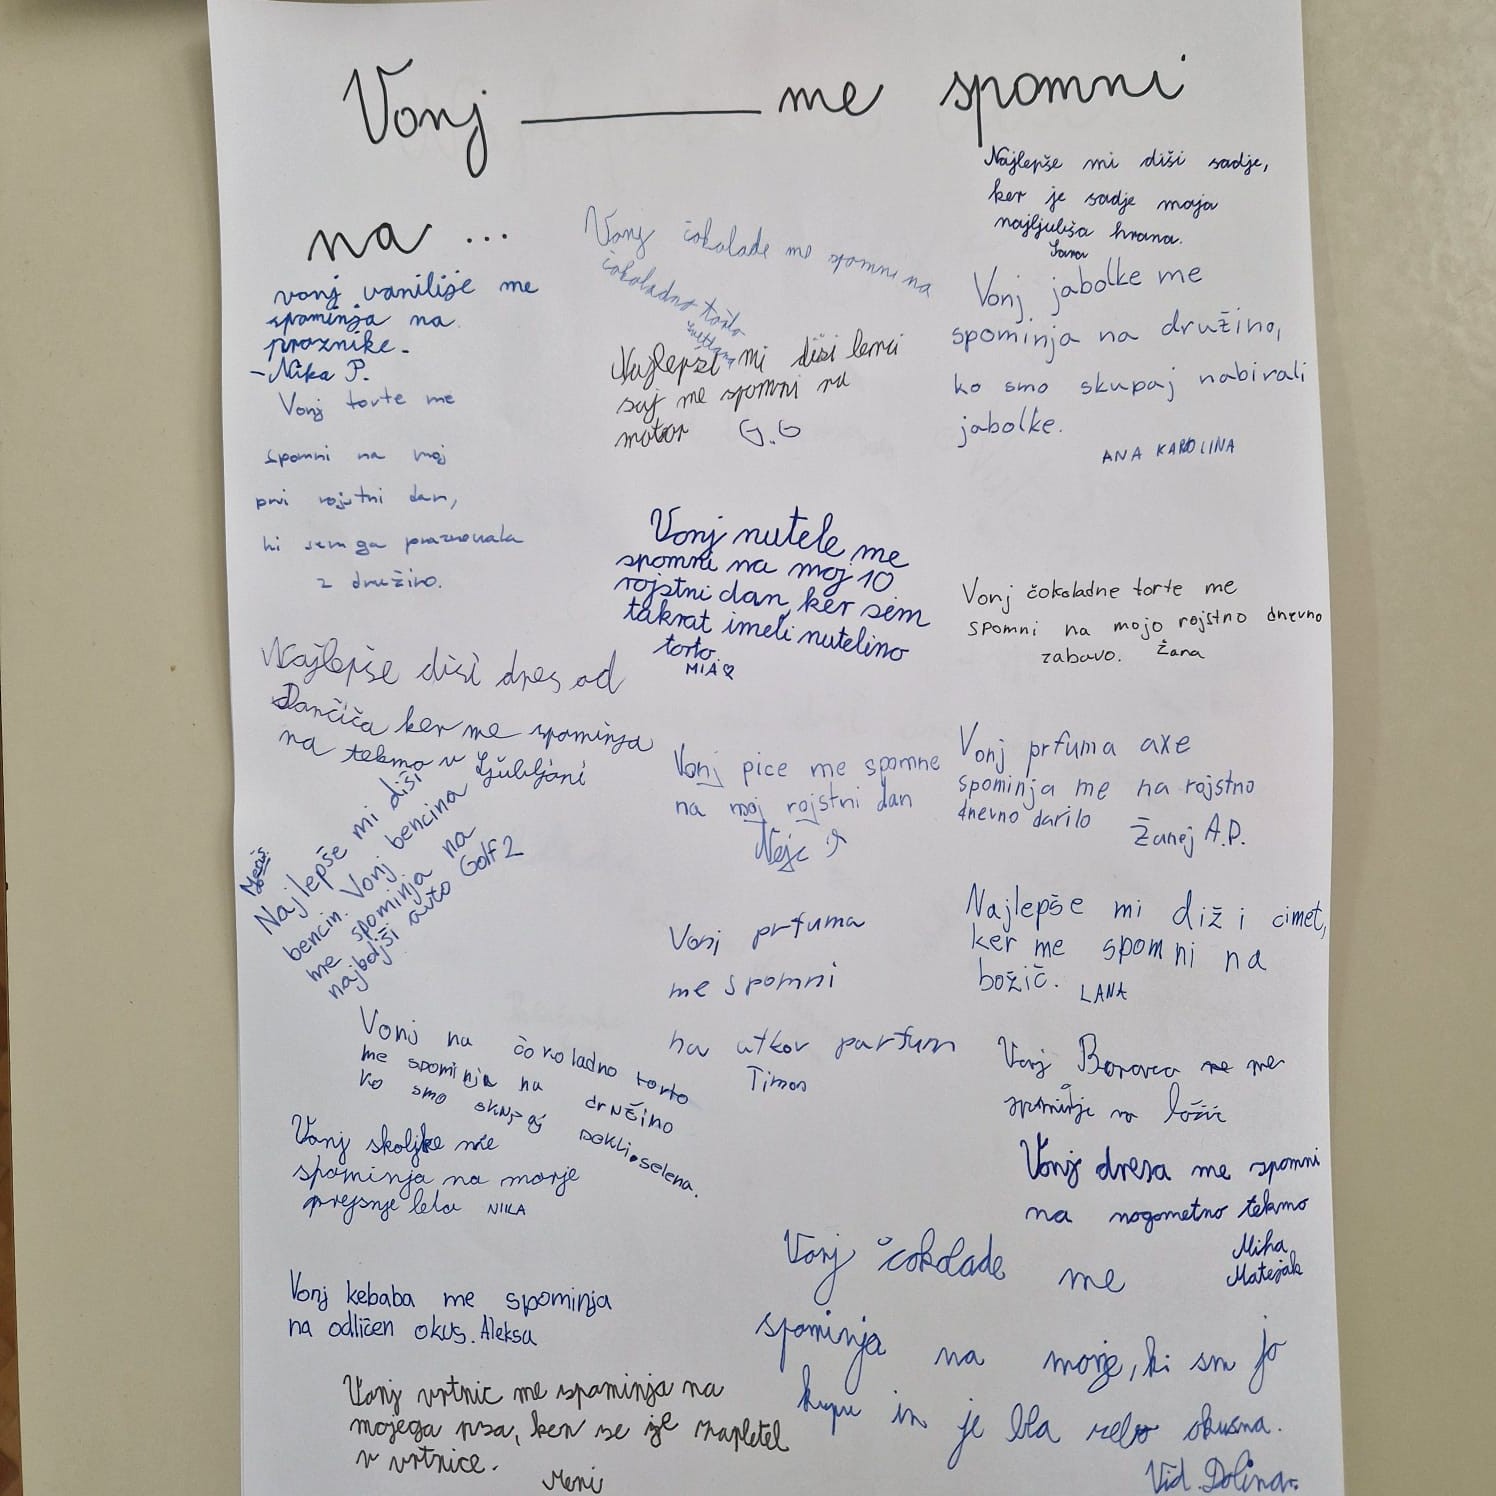 Vonj ________ me spomni
na ...
vonj vanilije me
spominja na
praznike.
- Nika P.
Vonj torte me
spomni na moj
prvi rojstni dan,
ki sem ga praznovala
z družino.
Najlepše diši dres od
Dančiča ker me spominja
na tekmo v Ljubljani
Najlepše mi diši
bencin. Vonj bencina
me spominja na
najboljši avto Golf 2
Vonj na čokoladno torto
me spominja na družino
ko smo skupaj pekli. selena.
Vonj skoljke me
spominja na morje
prejsnje leta NIKA
Vonj kebaba me spominja
na odličen okus. Aleksa
Vonj vrtnic me spominja na
mojega psa, ker se je zapletel
v vrtnice.
Meni
Vonj čokolade me spomni na
čokoladno torto
Svetlana
Najlepši mi diši lenci
saj me spomni na
motor G.G
Vonj nutele me
spomni na moj 10
rojstni dan, ker sem
takrat imeli nutelino
torto.
MIA♡
Vonj pice me spomne
na moj rojstni dan
Nejc
Vonj prfuma
me spomni
na atkov parfum
Timon
Najlepše mi diši sadje,
ker je sadje moja
najljubša hrana.
Sara
Vonj jabolke me
spominja na družino,
ko smo skupaj nabirali
jabolke.
ANA KAROLINA
Vonj čokoladne torte me
spomni na mojo rojstno dnevno
zabavo. Žana
Vonj prfuma axe
spominja me na rojstno
dnevno darilo
Žanej A.P.
Najlepše mi diži cimet,
ker me spomni na
božič. LANA
Vonj Borovca me
spominje na božič
Vonj dresa me spomni
na nogometno tekmo
Miha
Matejak
Vonj čokolade me
spominja na morje, ki sm jo
kupu in je bla zelo okusna.
Vid Dolinar